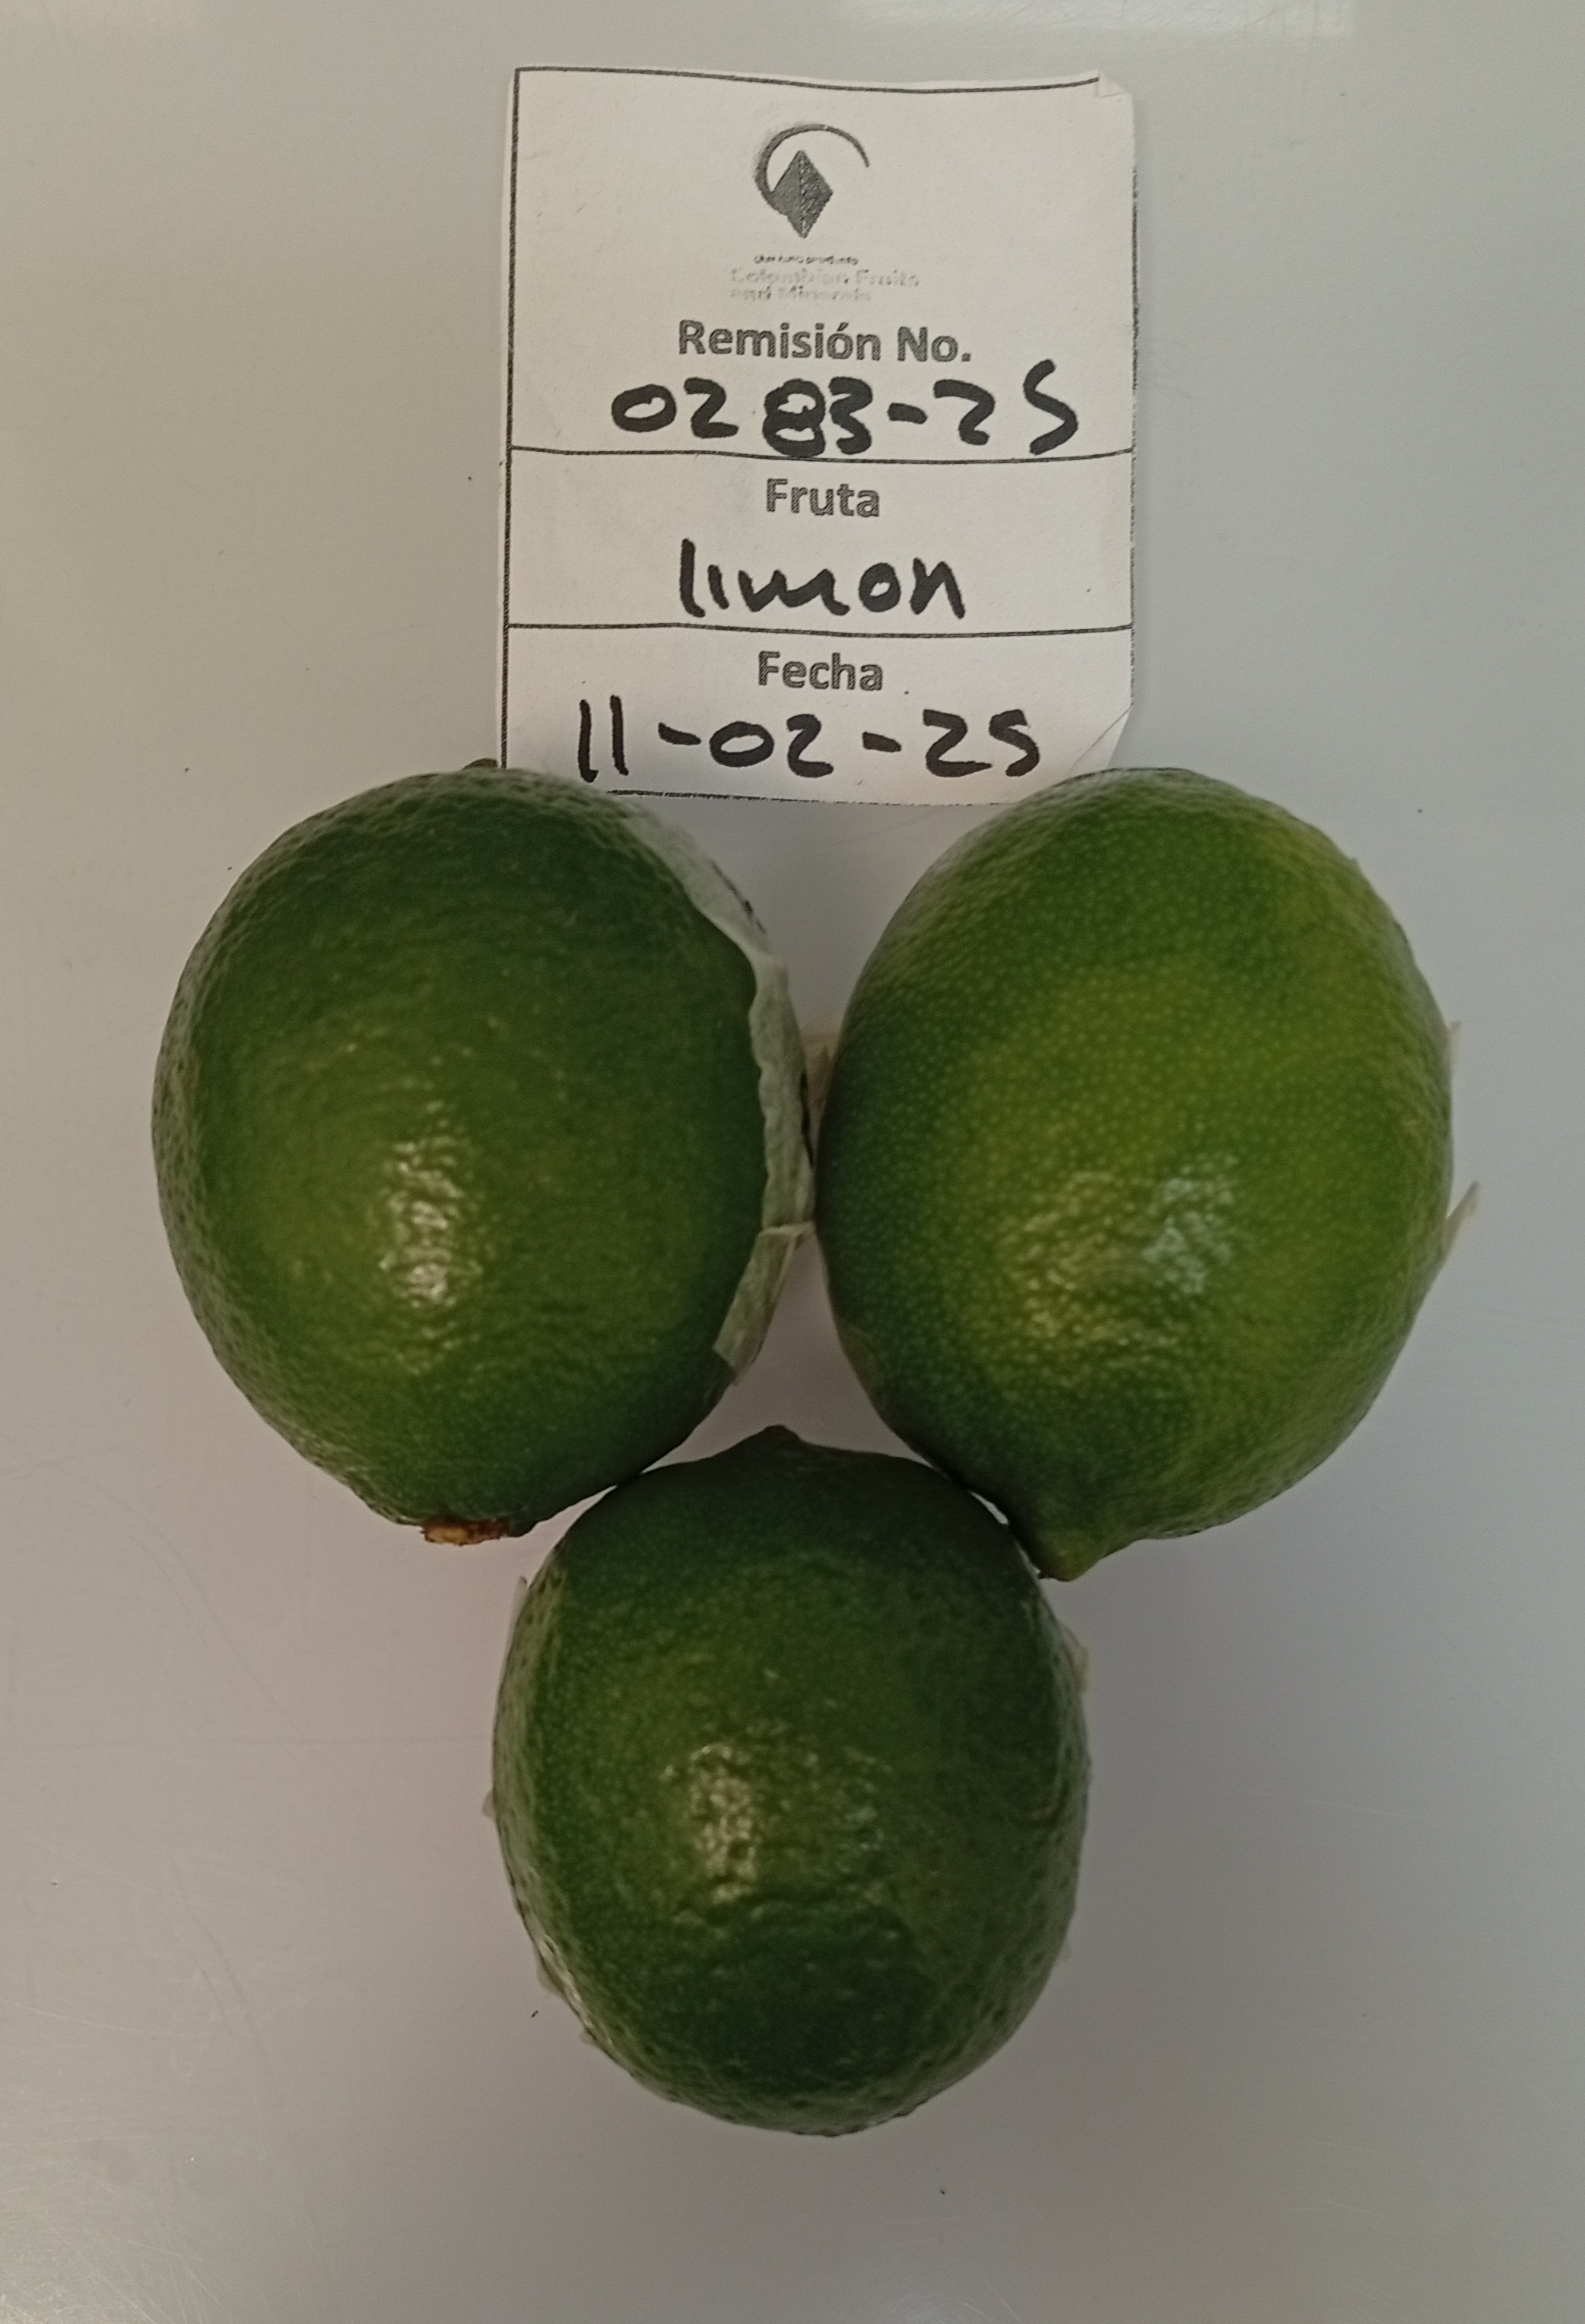 Colombian Fruits
and Minerals
Remisión No.
0283-25
Fruta
limon
Fecha
11-02-25